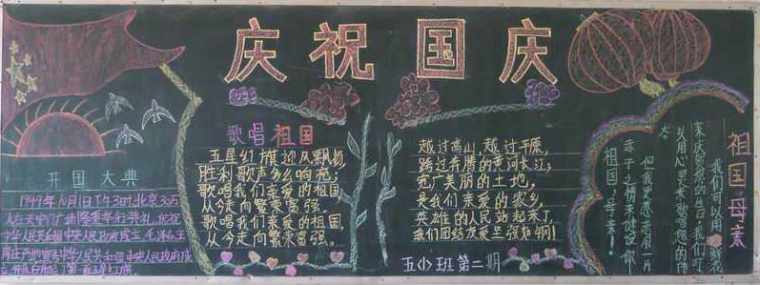 庆祝国庆
开国大典
1949年10月1日下午3时,北京30万
人在天安门广场隆重举行典礼,庆祝
中华人民共和国中央人民政府成立。毛泽东主
歌唱祖国
五星红旗迎风飘扬,
胜利歌声多么响亮;
歌唱我们亲爱的祖国
从今走向繁荣富强。
歌唱我们亲爱的祖国,
从今走向繁荣富强。
越过高山,越过平原,
跨过奔腾的黄河长江;
宽广美丽的土地,
是我们亲爱的家乡,
英雄的人民站起来了,
我们团结友爱坚强如钢!
五(1)班 第二期
祖国母亲
我们可以用鲜花
来庆贺您的生日,我们可
以用心里来赞
赤子之情来
祖国母亲!